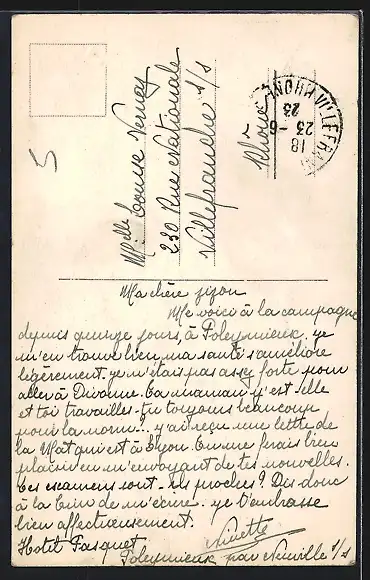 Mlle Louise Vernay
230 Rue Nationale
Villefranche s/s
Rhône
VILLEFRANCHE
RHONE
18
23 - 6
23
5
Ma chère zizon
Me voici à la campagne
depuis quinze jours, à Poleymieux. je
m'en trouve bien ma santé s'améliore
légèrement. je n'étais pas assez forte pour
aller à Divonne. Ta maman y est-elle
et toi travailles-tu toujours beaucoup
pour la norm... j'ai reçu une lettre de
la Mat qui est à Lyon. Tu me ferais bien
plaisir en m'envoyant de tes nouvelles.
Les examens sont-ils proches? Dis donc
à la Guin de m'écrire. je t'embrasse
bien affectueusement.
Ninette
Hotel Pasquet
Poleymieux par Neuville s/s